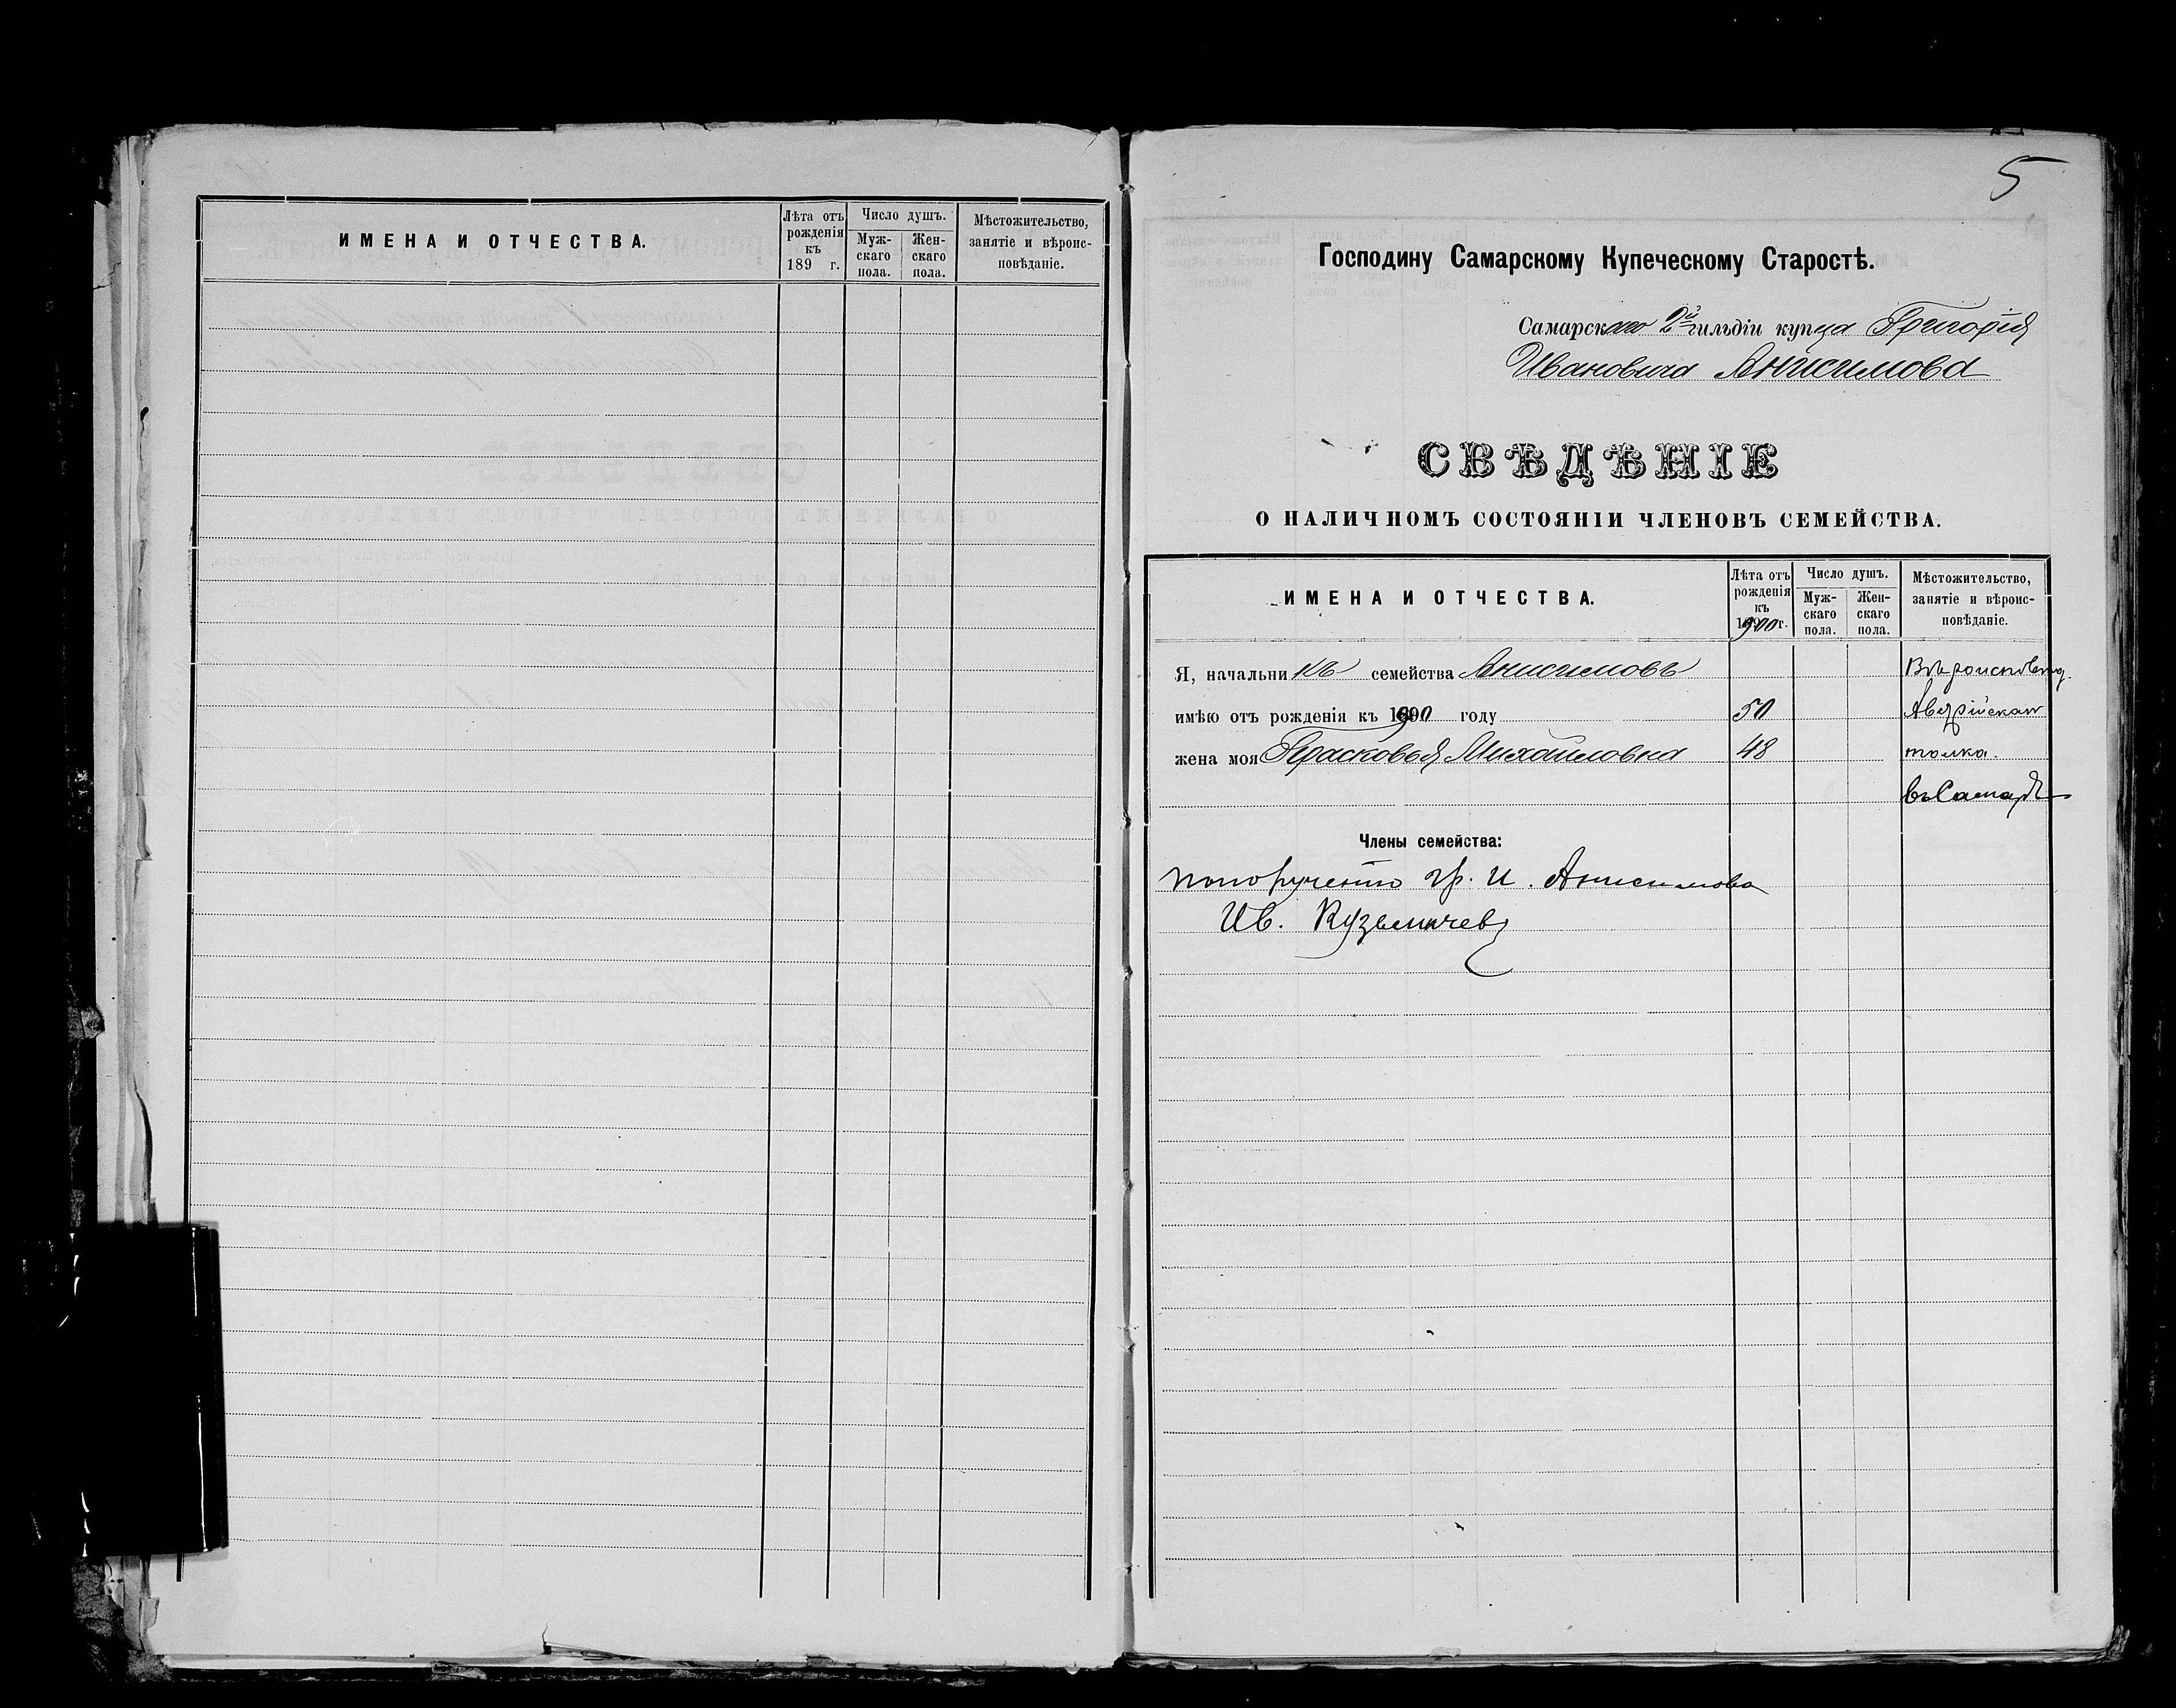 ИМЕНА И ОТЧЕСТВА.
Лѣта отъ рожденія къ 189 г.
Число душъ.
Муж-
скаго
пола.
Жен-
скаго
пола.
Мѣстожительство,
занятіе и вѣроис-
повѣданіе.
5
Господину Самарскому Купеческому Старостѣ.
Самарскаго 2й гильдіи купца Григорія
Ивановича Анисимова
СВѢДѢНІЕ
О НАЛИЧНОМЪ СОСТОЯНІИ ЧЛЕНОВЪ СЕМЕЙСТВА.
ИМЕНА И ОТЧЕСТВА.
Лѣта отъ
рожденія
къ
1900 г.
Число душъ.
Муж-
скаго
пола.
Жен-
скаго
пола.
Мѣстожительство,
занятіе и вѣроис-
повѣданіе.
Я, начальникъ семейства Анисимовъ
имѣю отъ рожденія къ 1900 году 50
жена моя Прасковья Михайловна 48 толка.
въ Самарѣ
Члены семейства:
по порученію Гр. И. Анисимова
Ив. Кузьмичев